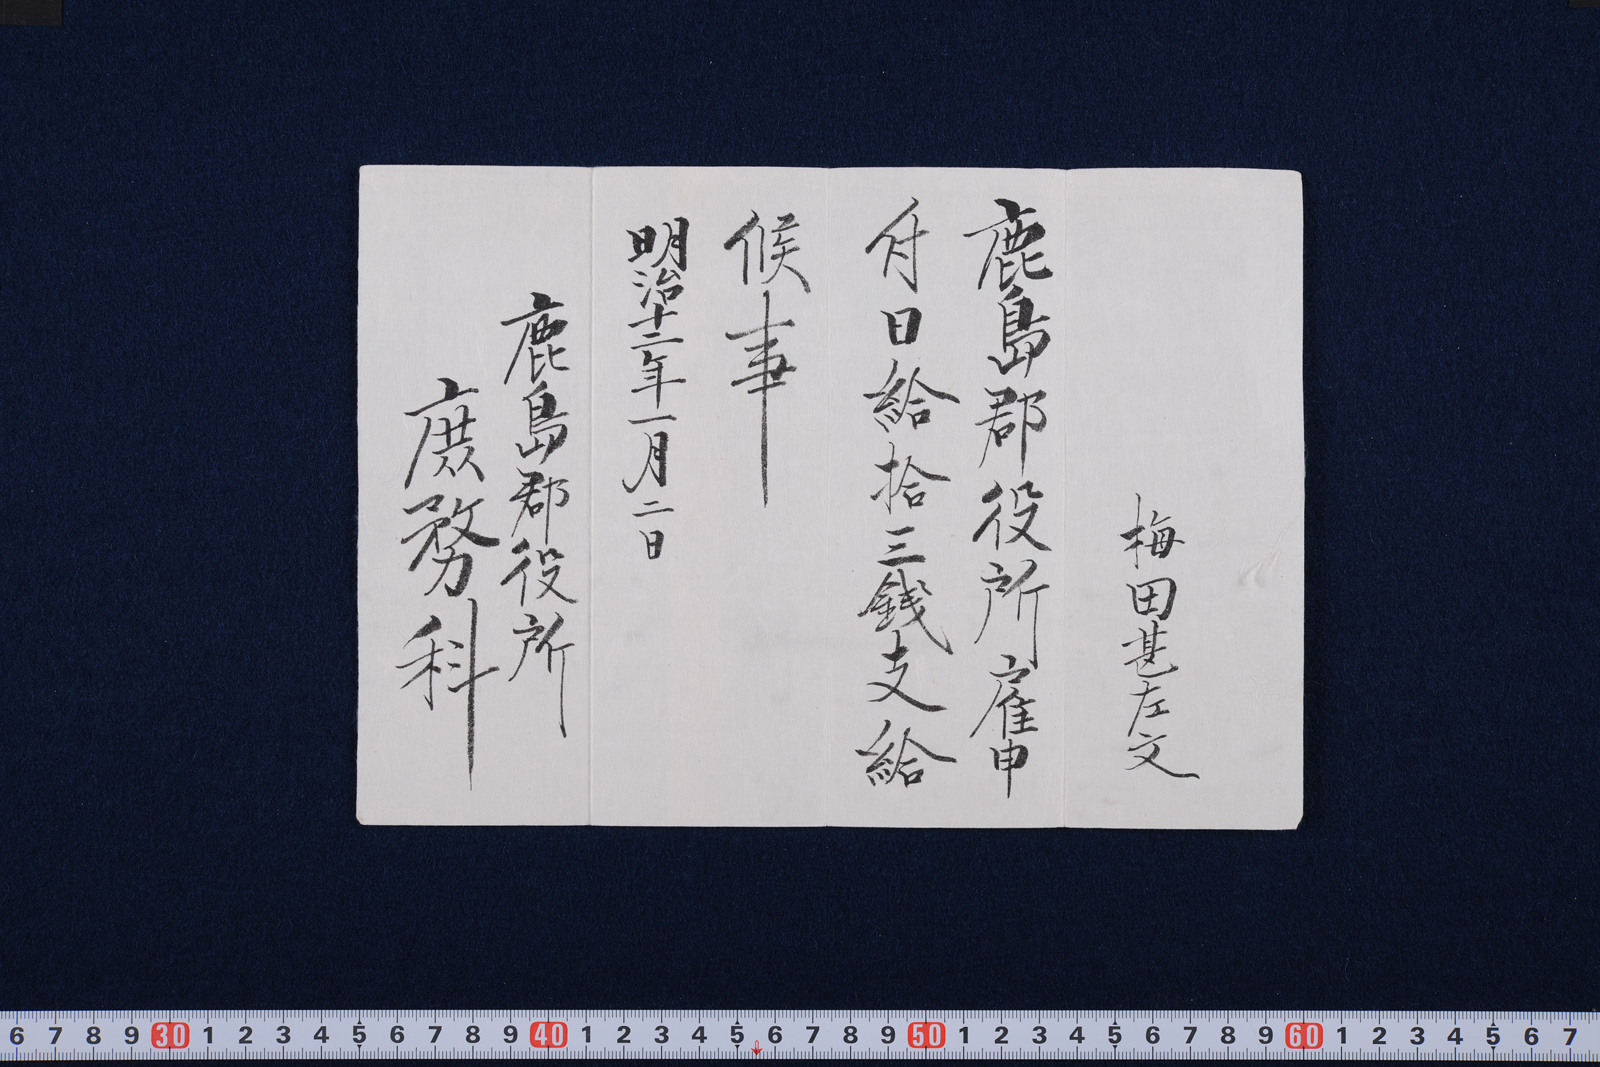 梅田甚左文
鹿島郡役所雇申
付日給拾三銭支給
候事
明治十二年一月二日
鹿島郡役所
庶務科
6 7 8 9 30 1 2 3 4 5 6 7 8 9 40 1 2 3 4 5 6 7 8 9 50 1 2 3 4 5 6 7 8 9 60 1 2 3 4 5 6 7